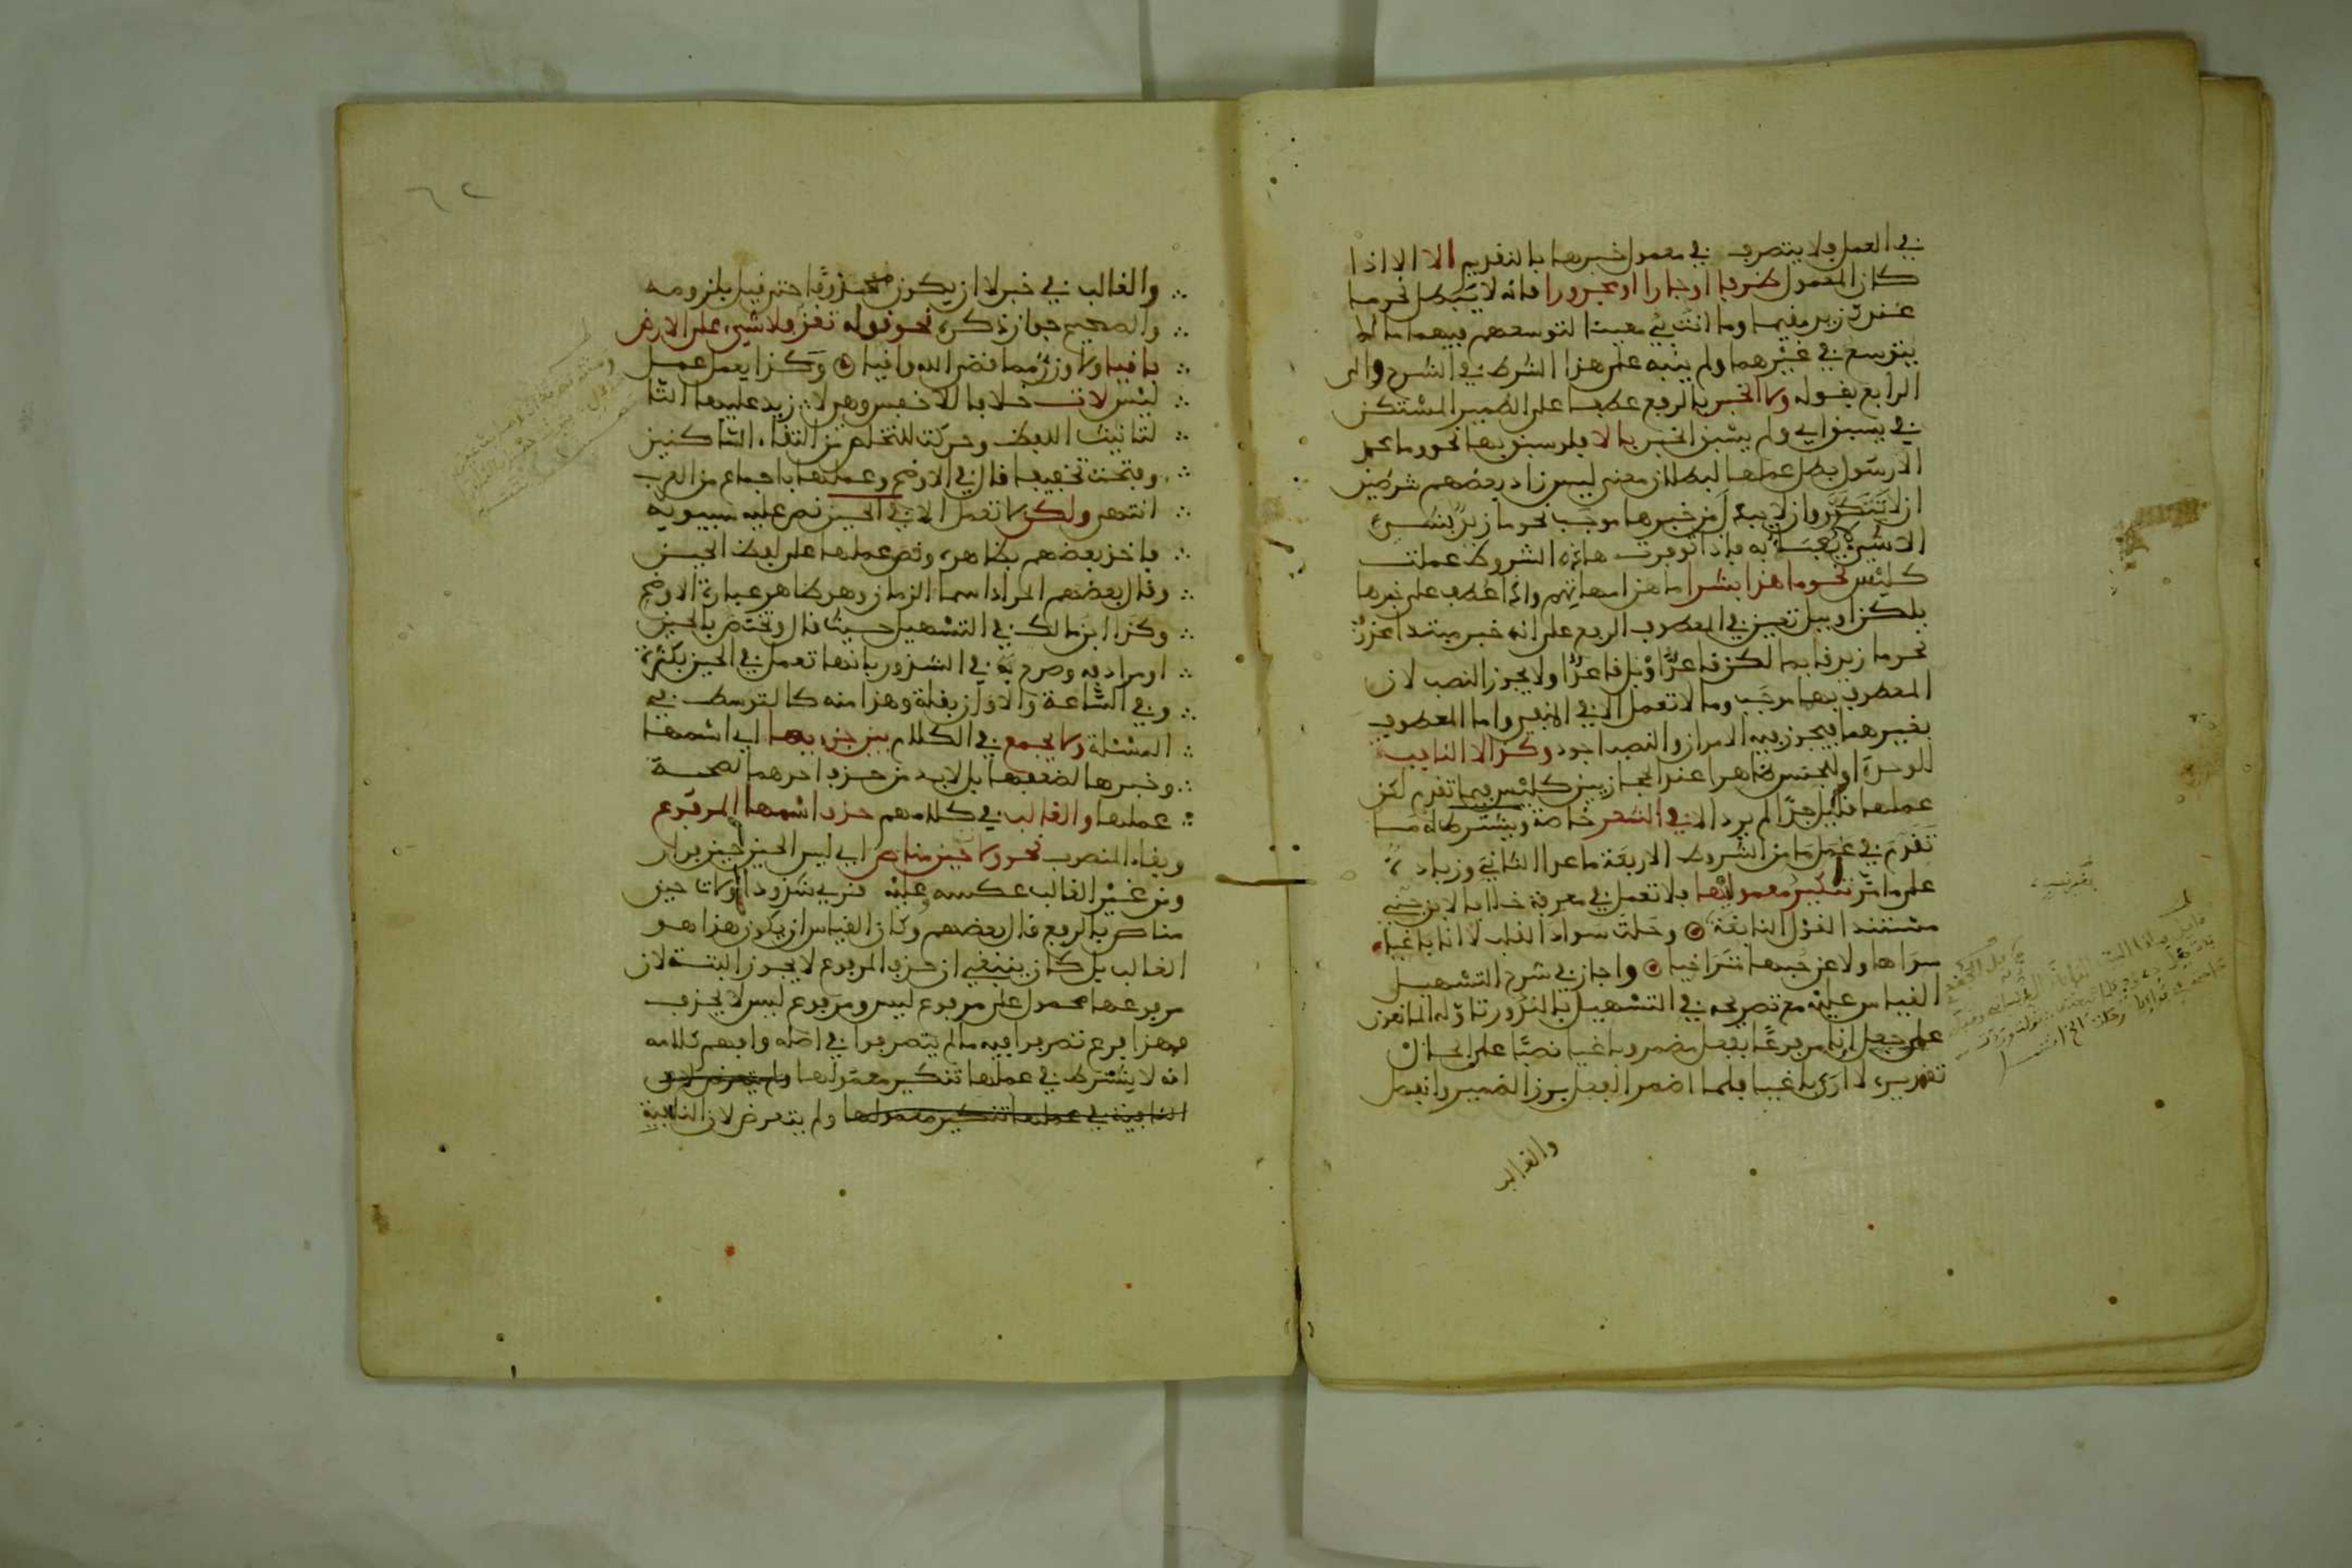 في العمل فلا يتصرف في معمول خبرها بالتقديم الا اذا
كان المعمول ظرفا او جارا او مجرورا فانه لا يبطل نحو ما
عندك زيد مقيما وما انت بي معينا لتوسعهم فيهما ما لم
يتوسع في غيرهما ولم ينبه على هذا الشرط في الشرح والى
الرابع بقوله ولا الخبر بالرفع عطفا على الضمير المستكن
في يسبق اي ولم يسبق الخبر بالا فلو سبق بها نحو وما محمد
الا رسول بطل عملها لبطلان معنى ليس زاد بعضهم شرطين
ان لا تتكرر وان لا يبدل من خبرها موجب نحو ما زيد بشيء
الا شيء لا يعبأ به فاذا توفرت هاذه الشروط عملت
كليس نحو ما هذا بشرا ما هن امهاتهم واذا عطف على خبرها
بلكن او ببل تعين في المعطوف الرفع على انه خبر مبتدا محذوف
نحو ما زيد قائما لكن قاعد او بل قاعد ولا يجوز النصب لان
المعطوف بهما موجب وما لا تعمل الا في المنفي واما المعطوف
بغيرهما فيجوز فيه الامران والنصب اجود وكذا لا النافية
للوحدة او للجنس ظاهرا عند الحجازيين كليس فيما تقدم لكن
عملها قليل جدا لم يرد الا في الشعر خاصة ويشترط له ما
تقدم في عمل ما من الشروط الاربعة ما عدا الثاني وزيادة
على ما مر تنكير معموليها فلا تعمل في معرفة خلافا لابن جني
مستندا لقول النابغة وحلت سواد القلب لا انا باغيا
سواها ولا عن حبها متراخيا واجاز في شرح التسهيل
القياس عليه مع تصريحه في التسهيل بالندور تاوله المانعون
على جعل انا مرفوعا بفعل مضمر وباغيا نصبا على الحال
تقديره لا ارى باغيا فلما اضمر الفعل برز الضمير وانفصل
والغالب
والغالب في خبر لا ان يكون محذوفا حتى قيل بلزومه
والصحيح جواز ذكره نحو قوله تعز فلا شيء على الارض
باقيا ولا وزر مما قضى الله واقيا وكذا يعمل عمل
ليس لات خلافا للاخفش وهي لا زيد عليها التا
لتانيث اللفظ وحركت للتخلص من التقاء الساكنين
وفتحت تخفيفا قال في الاوضح وعملها باجماع من العرب
انتهى ولكن لا تعمل الا في الحين نص عليه سيبويه
فاخذ بعضهم بظاهره وقصر عملها على لفظ الحين
وقال بعضهم المراد اسما الزمان وهو ظاهر عبارة الاوضح
وكذا ابن مالك في التسهيل حيث قال وتختص بالحين
او مرادفه وصرح به في الشذور بانها تعمل في الحين بكثرة
وفي الساعة والاوان بقلة وهذا منه كالتوسط في
المسئلة ولا يجمع في الكلام بين جزءيها اي اسمها
وخبرها لضعفها بل لابد من حذف احدهما لصحة
عملها والغالب في كلامهم حذف اسمها المرفوع
وبقاء المنصوب نحو ولات حين مناص اي ليس الحين حين فرار
ومن غير الغالب عكسه وعليه قرىء شذوذا ولات حين
مناص بالرفع قال بعضهم وكان القياس ان يكون هذا هو
الغالب بل كان ينبغي ان حذف المرفوع لا يجوز البتة لان
مرفوعها محمول على مرفوع ليس ومرفوع ليس لا يحذف
فهذا فرع تصرفوا فيه ما لم يتصرفوا في اصله وافهم كلامه
انه لا يشترط في عملها تنكير معمولها ولم يتعرض لان
النافية في عملها تنكير معمولها ولم يتعرض لان النافية